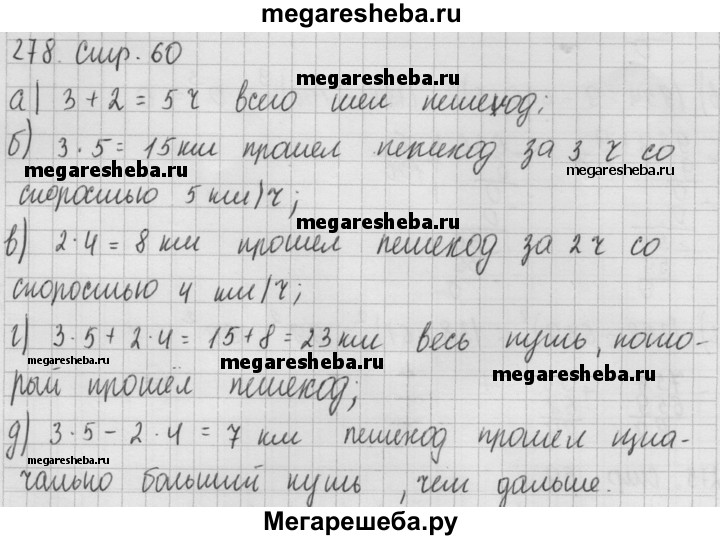 megaresheba.ru
278. Стр. 60
megaresheba.ru
а) 3 + 2 = 5 ч всего шел пешеход;
б) 3 · 5 = 15 км прошел пешеход за 3 ч со
megaresheba.ru megaresheba.ru
скоростью 5 км/ч;
megaresheba.ru
в) 2 · 4 = 8 км прошел пешеход за 2 ч со
скоростью 4 км/ч;
г) 3 · 5 + 2 · 4 = 15 + 8 = 23 км весь путь, кото-
megaresheba.ru megaresheba.ru megaresheba.ru
рый прошёл пешеход;
д) 3 · 5 - 2 · 4 = 7 км пешеход прошел
megaresheba.ru
чально больший путь, чем дальше.
Мегарешеба.ру